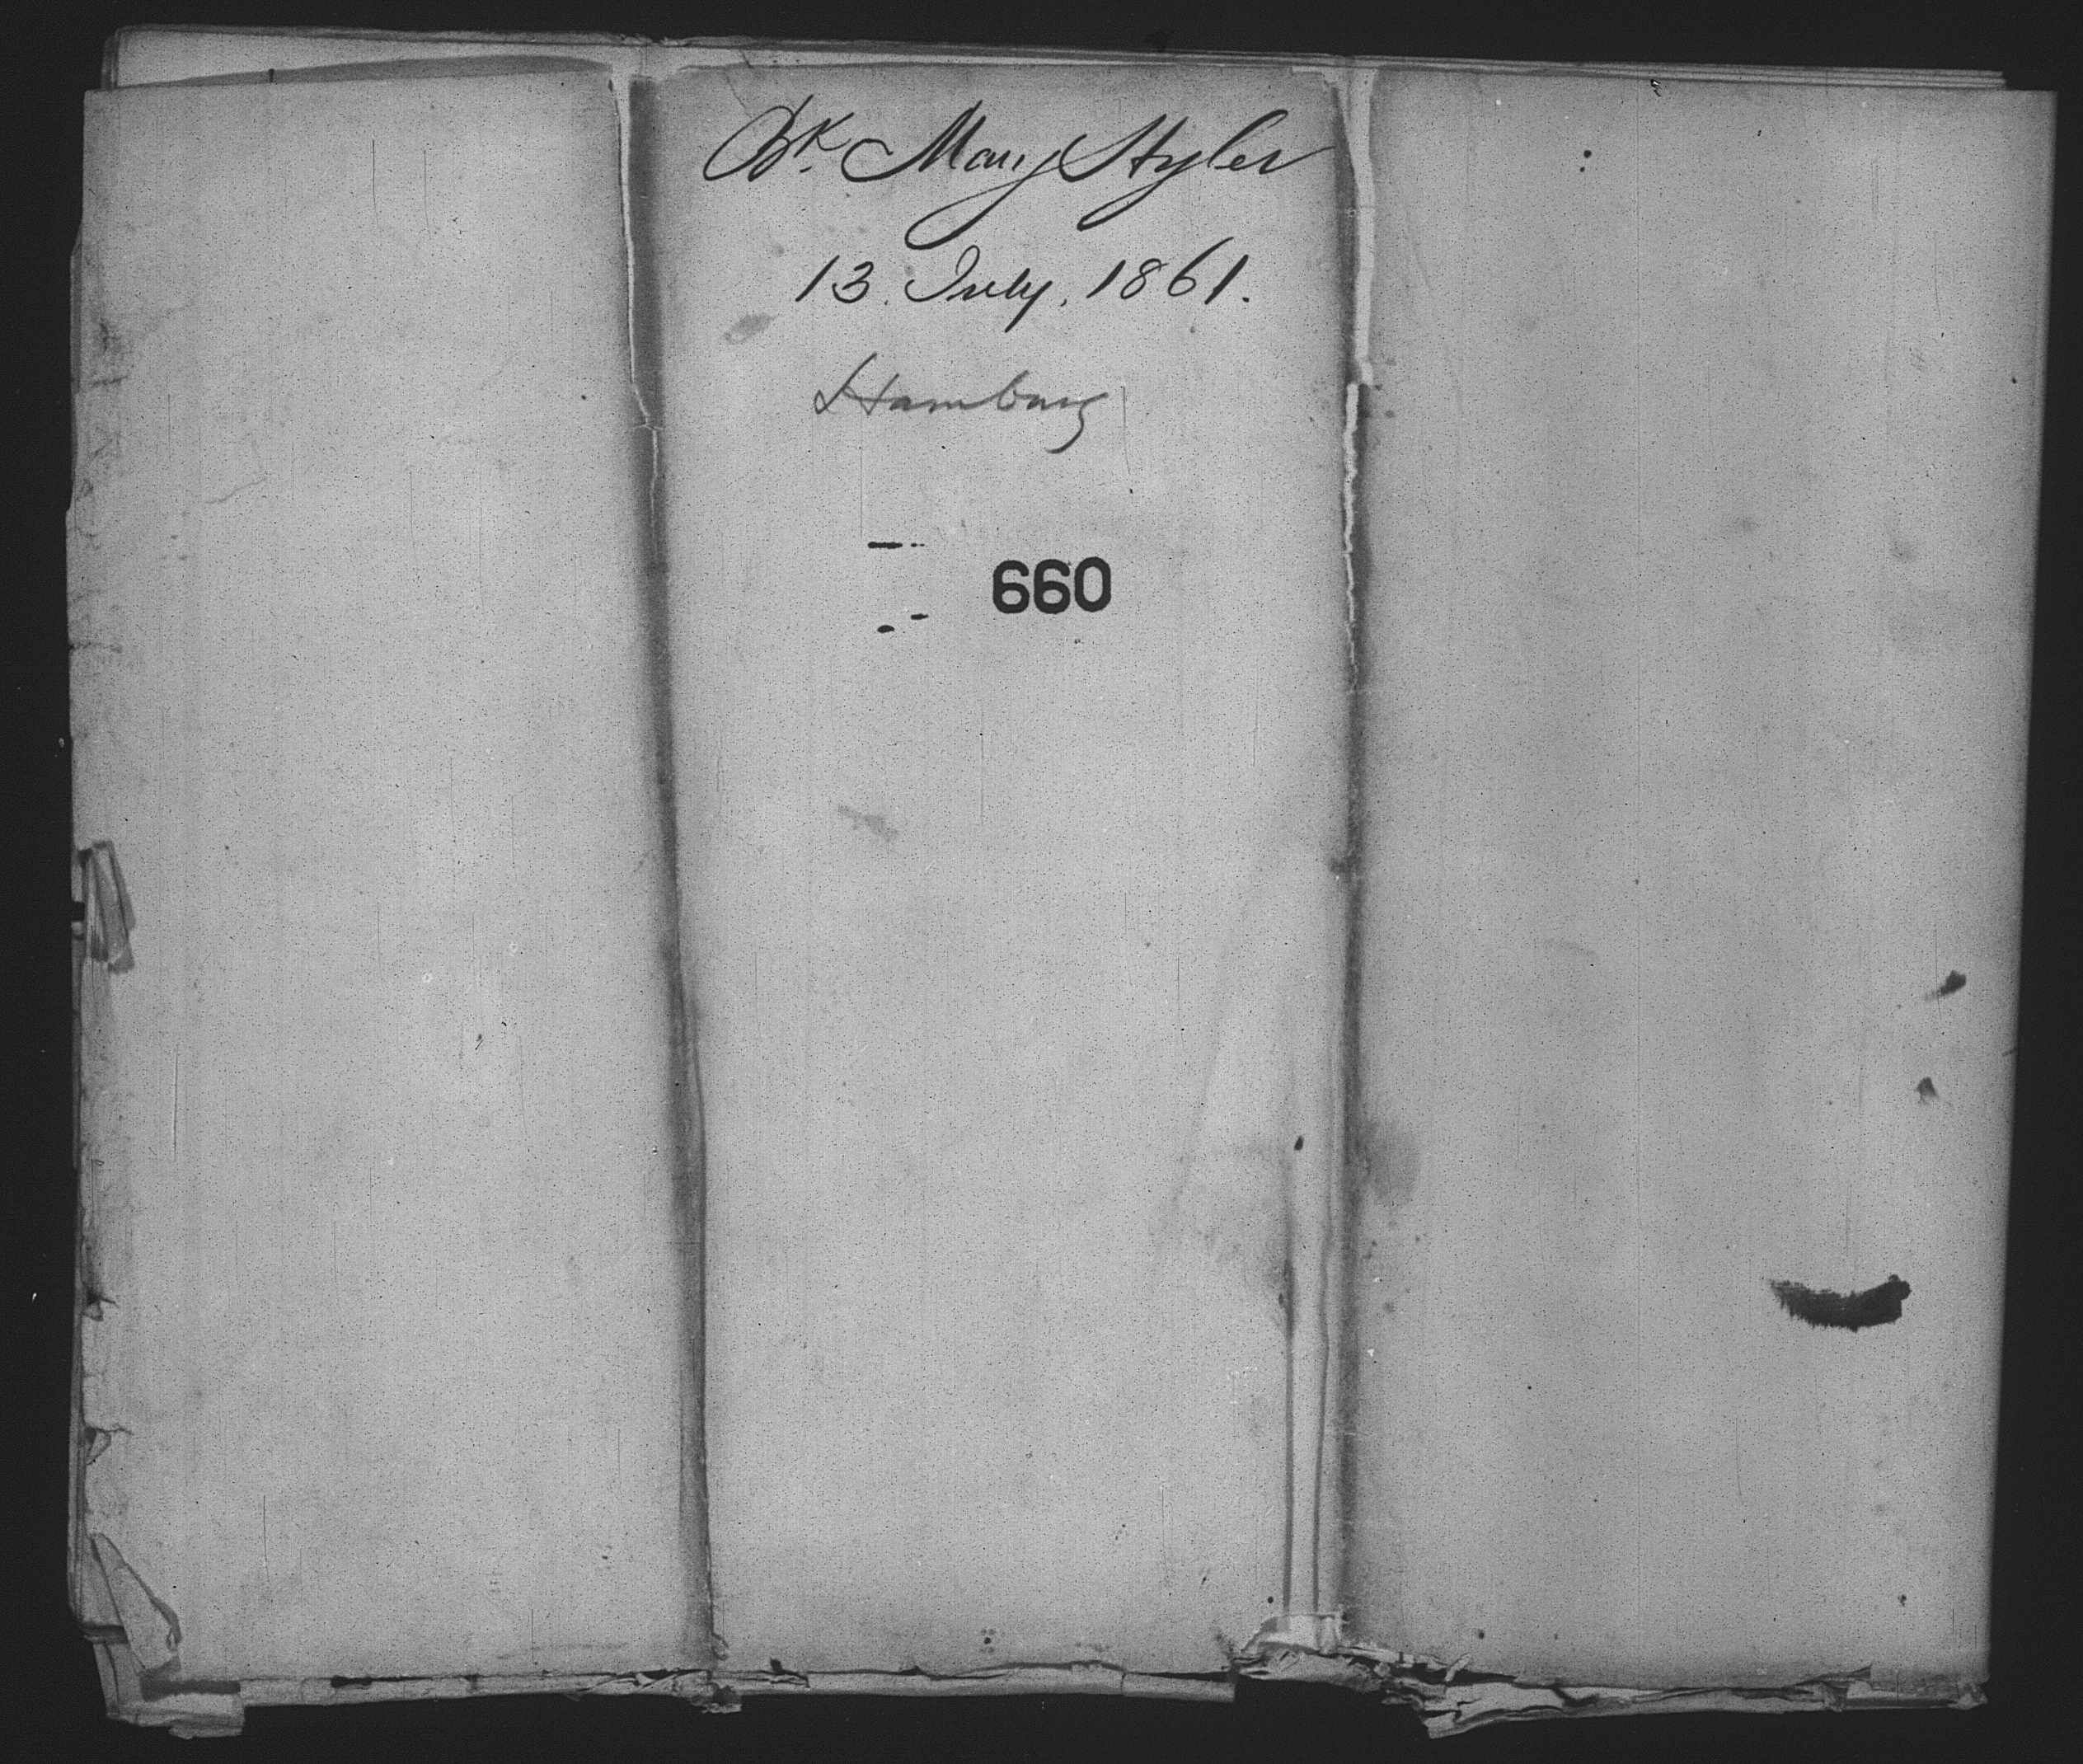 Bk. Mary Styler
13. July. 1861.
Hamburg
660